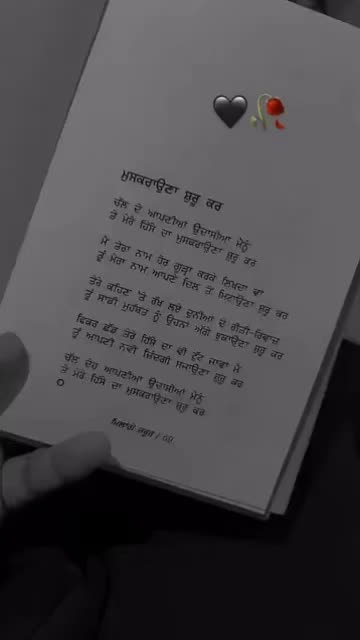 ਮੁਸਕਰਾਉਣਾ ਸ਼ੁਰੂ ਕਰ
ਚੱਲ ਦੇ ਆਪਣੀਆਂ ਉਦਾਸੀਆਂ ਮੈਨੂੰ
ਤੇ ਮੇਰੇ ਹਿੱਸੇ ਦਾ ਮੁਸਕਰਾਉਣਾ ਸ਼ੁਰੂ ਕਰ
ਮੈਂ ਤੇਰਾ ਨਾਮ ਹੋਰ ਗੂੜ੍ਹਾ ਕਰਕੇ ਲਿਖਦਾ ਵਾਂ
ਤੂੰ ਮੇਰਾ ਨਾਮ ਆਪਣੇ ਦਿਲ ਤੋਂ ਮਿਟਾਉਣਾ ਸ਼ੁਰੂ ਕਰ
ਤੇਰੇ ਕਹਿਣ 'ਤੇ ਰੱਖ ਲਏ ਦੁਨੀਆਂ ਦੇ ਰੀਤੀ-ਰਿਵਾਜ਼
ਤੂੰ ਸਾਡੀ ਮੁਹੱਬਤ ਨੂੰ ਉਹਨਾਂ ਅੱਗੇ ਝੁਕਾਉਣਾ ਸ਼ੁਰੂ ਕਰ
ਫਿਕਰ ਛੱਡ ਤੇਰੇ ਹਿੱਸੇ ਦਾ ਵੀ ਟੁੱਟ ਜਾਵਾਂ ਮੈਂ
ਤੂੰ ਆਪਣੀ ਨਵੀਂ ਜ਼ਿੰਦਗੀ ਸਜਾਉਣਾ ਸ਼ੁਰੂ ਕਰ
ਚੱਲ ਦੇਹ ਆਪਣੀਆਂ ਉਦਾਸੀਆਂ ਮੈਨੂੰ
ਤੇ ਮੇਰੇ ਹਿੱਸੇ ਦਾ ਮੁਸਕਰਾਉਣਾ ਸ਼ੁਰੂ ਕਰ